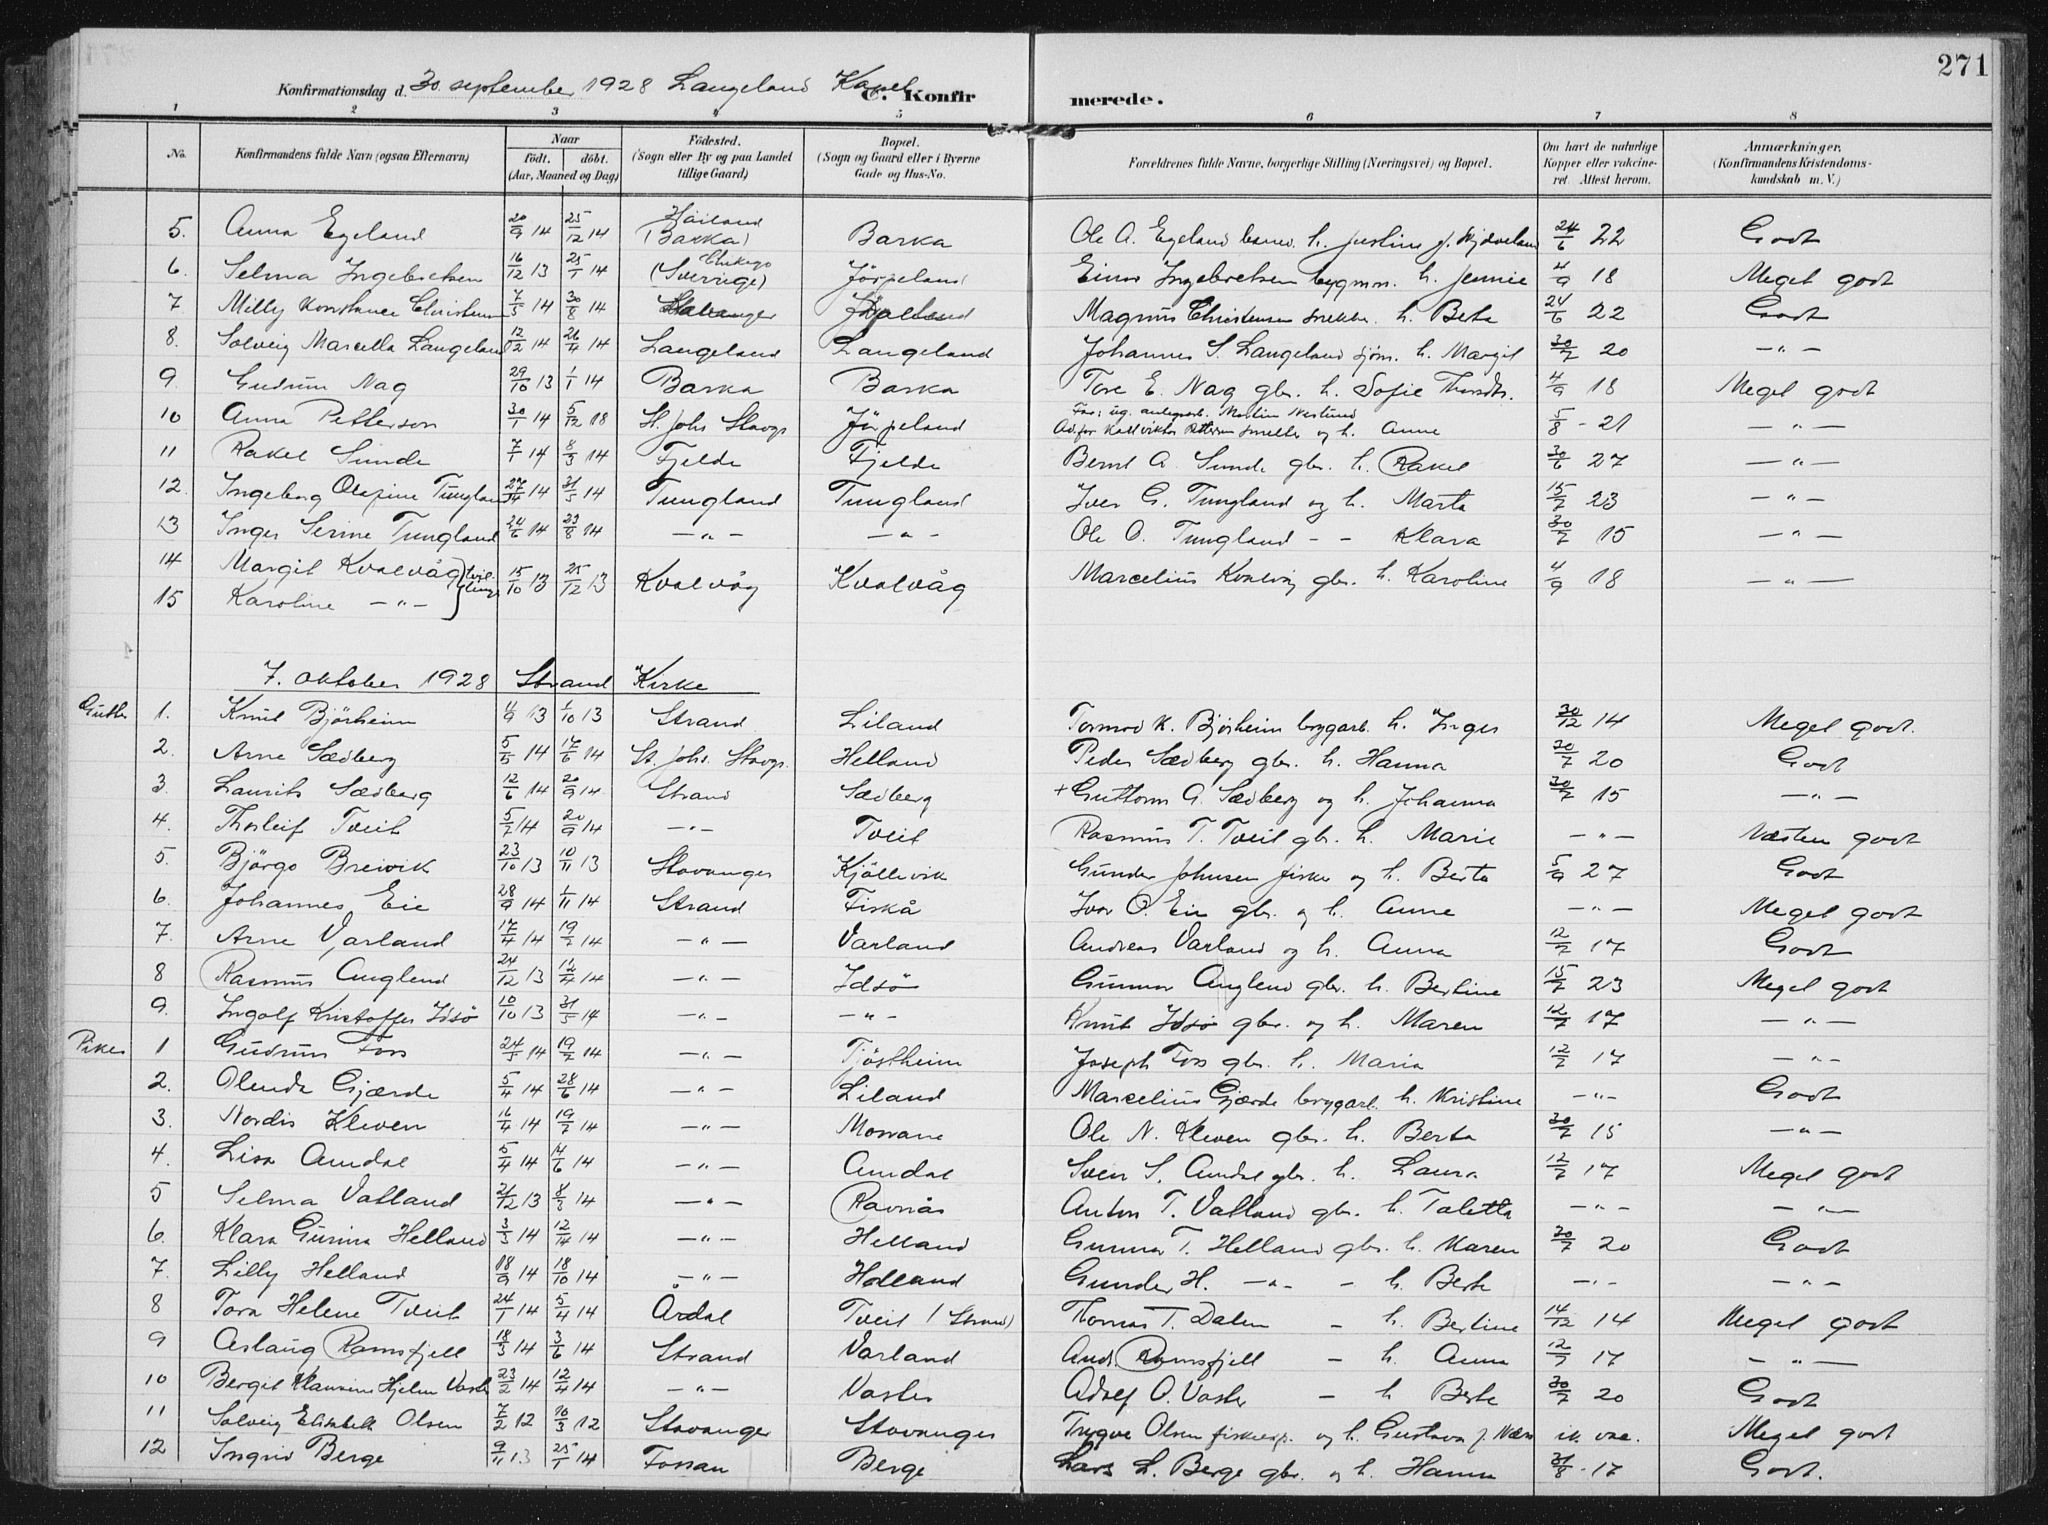 271
Konfirmationsdag d. 30 september 1928 Langeland Kapel C. Konfirmerede.
1 2 3 4 5 6 7 8
No. Konfirmandens fulde Navn (ogsaa Efternavn) Naar født. døbt. (Aar, Maaned og Dag) Födested. (Sogn eller By og paa Landet tillige Gaard) Bopæl. (Sogn og Gaard eller i Byerne Gade og Hus-No. Forældrenes fulde Navne, borgerlige Stilling (Næringsvei) og Bopæl. Om havt de naturlige Kopper eller vakcineret. Attest herom. Anmærkninger. (Konfirmandens Kristendomskundskab m. V.)
5. Anna Egeland 20/9 14 25/12 14 (Barka) Barka Ole A. Egeland h. Justine f. 24/6 22 Godt
6. Selma Ingebretsen 16/12 13 25/1 14 Chikago (Sverrige) Jörpeland Einar Ingebretsen bygmm. h. Jennie 4/9 18 Meget godt
7 Milly Konstance Christensen 7/5 14 30/8 14 Stavanger Jörpeland Magnus Christensen snekker h. Berta 24/6 22 Godt
8. Solveig Marcella Langeland 12/2 14 26/4 14 Langeland Langeland Johannes S. Langeland sjøm. h. Margit 30/7 20 — " —
9. Gudrun Nag 29/10 13 1/1 14 Barka Barka Tore E. Nag gbr. h. Sofie Thordtr. 4/9 18 Meget godt
10 Anna Petterson 30/1 14 5/12 18 St. Johs Stavgr Jörpeland Far: ug. Martin Neslund Ad.far Karl Viktor Petterson smelter og h. Anne 5/8 - 21 — " —
11 Rakel Sunde 7/1 14 8/3 14 Fjelde Fjelde Bernt A. Sunde gbr. h. Rakel 30/6 27 — " —
12. Ingeborg Olafine Tungland 27/4 14 31/5 14 Tungland Tungland Iver G. Tungland og h. Marta 15/7 23 — " —
13 Inger Serine Tungland 24/6 14 23/8 14 — " — — " — Ole O. Tungland - - Klara 30/7 15 — " —
14 Margit Kvalvåg } tvillinger 15/10 13 25/12 13 Kvalvåg Kvalvåg Marcelius Kvalvåg gbr. h. Karoline 4/9 18 — " —
15 Karoline — " —
7. oktober 1928 Strand Kirke
Gutter 1. Knut Bjørheim 4/9 13 1/10 13 Strand Liland Tormod K. Bjørheim bryggarb. h. Inger 30/12 14 Meget godt.
2. Arne Sædberg 5/5 14 17/6 14 St. Johs. Stavgr. Helland Peder Sædberg gbr. h. Hanna 30/7 20 Godt
3. Laurits Sædberg 12/6 14 20/9 14 Strand Sædberg + Guttorm G. Sædberg og h. Johanna 30/7 15 — " —
4. Thorleif Tveit 5/7 14 20/9 14 — " — Tveit Rasmus T. Tveit gbr. h. Marie — " — Næsten godt
5. Bjørgo Breivik 23/10 13 10/11 13 Stavanger Kjöllevik Gunder Johnsen fisker og h. Berta 5/9 27 Godt
6. Johannes Eie 28/9 14 1/11 14 Strand Fiskå Ivar O. Eie gbr. og h. Anne — " — Meget godt
7. Arne Varland 17/4 14 19/7 14 — " — Varland Andreas Varland og h. Anna 12/7 17 Godt
8 Rasmus Auglend 24/12 13 12/4 14 — " — Idsø Gunnar Auglend gbr. h. Bertine 15/7 23 Meget godt
9. Ingolf Kristoffer Idsø 10/10 13 31/5 14 — " — — " — Knut Idsø gbr. og h. Maren 12/7 17 — " —
Piker 1 Gudrun Foss 24/5 14 19/7 14 — " — Tjöstheim Joseph Foss gbr. h. Maria 12/7 17 — " —
2. Olenda Gjærde 5/4 14 28/6 14 — " — Liland Marcelius Gjærde bryggarb. h. Kristine — " — Godt
3. Nordis Kleven 16/4 14 19/7 14 — " — Mosvane Ole N. Kleven gbr. h. Berta 30/7 15 — " —
4. Lisa Amdal 5/4 14 14/6 14 — " — Amdal Sven S. Amdal gbr. h. Laura 12/7 17 Meget godt
5 Selma Vatland 21/12 13 8/3 14 — " — Ravnås Anton T. Vatland gbr. h. Taletta — " — — " —
6. Klara Gurina Helland 3/3 14 12/4 14 — " — Helland Gunnar T. Helland gbr. h. Karen 30/7 20 Godt
7. Lilly Helland 18/9 14 18/10 14 — " — Helland Gunder H. — " — - h. Berte — " — — " —
8 Tora Helene Tveit 24/1 14 5/4 14 Årdal Tveit (Strand) Thomas T. Dalen - h. Bertine 14/12 14 Meget godt
9 Aslaug Ramsfjell 18/3 14 3/6 14 Strand Varland And. Ramsfjell - h. Anna 12/7 17 — " —
10 Bergit Klausine Hjelm Vaster 23/2 14 12/4 14 — " — Vaster Adolf O. Vaster - h. Berte 30/7 20 Godt
11 Solveig Elisabeth Olsen 7/2 12 10/3 12 Stavanger Stavanger Trygve Olsen og h. Gustava f. Næss ik. vac. Meget godt
12 Ingrid Berge 9/11 13 25/1 14 Fossan Berge Lars L. Berge gbr. og h. Hanna 31/8 - 17 Godt.